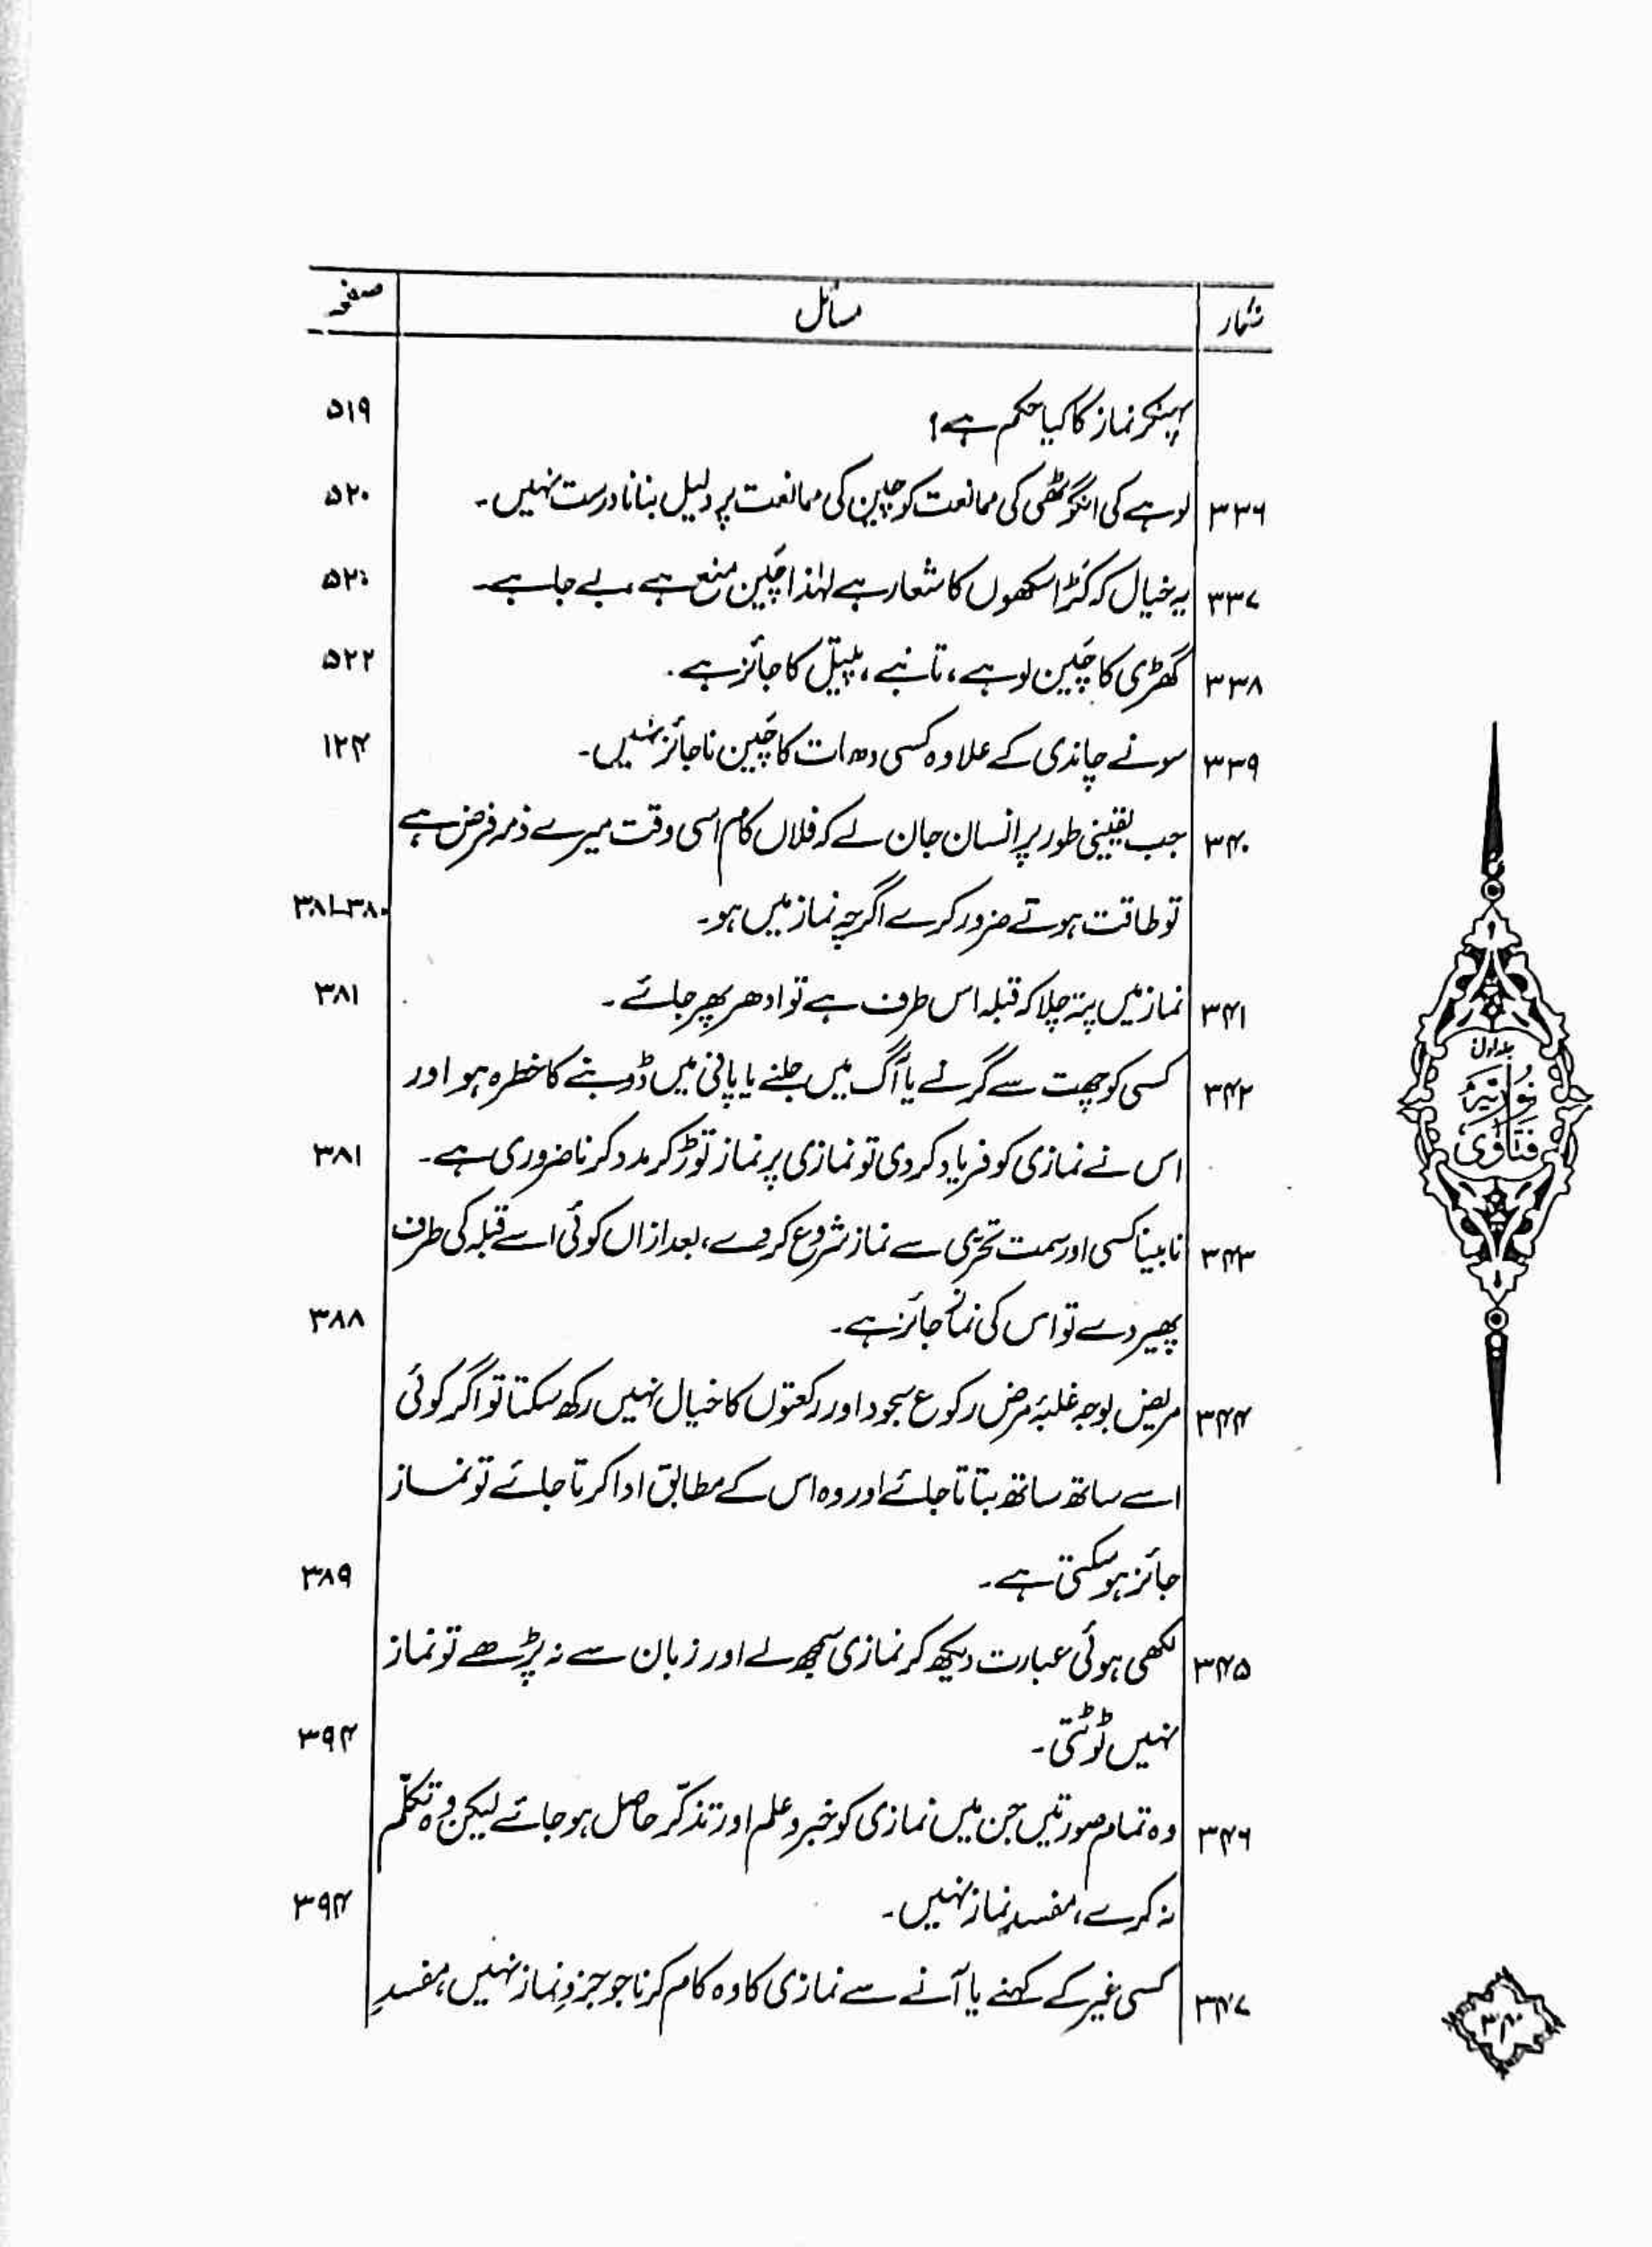 شمار مسائل صفحہ
پہنکر نماز کا کیا حکم ہے؟ ۵۱۹
۳۳۶ لوہے کی انگوٹھی کی ممانعت کو چین کی ممانعت پر دلیل بنانا درست نہیں۔ ۵۲۰
۳۳۷ یہ خیال کہ کَڑا سکھوں کا شعار ہے لہٰذا چَین منع ہے، بے جا ہے۔ ۵۲۰
۳۳۸ گھڑی کا چَین لوہے، تانبے، پیتل کا جائز ہے۔ ۵۲۲
۳۳۹ سونے چاندی کے علاوہ کسی دھات کا چَین ناجائز نہیں۔ ۱۲۴
۳۴۰ جب یقینی طور پر انسان جان لے کہ فلاں کام اسی وقت میرے ذمہ فرض ہے
تو طاقت ہوتے ضرور کرے اگرچہ نماز میں ہو۔ ۳۸۰-۳۸۱
۳۴۱ نماز میں پتہ چلا کہ قبلہ اس طرف ہے تو ادھر پھر جائے۔ ۳۸۱
۳۴۲ کسی کو چھت سے گرنے یا آگ میں جلنے یا پانی میں ڈوبنے کا خطرہ ہو اور
اس نے نمازی کو فریاد کر دی تو نمازی پر نماز توڑ کر مدد کرنا ضروری ہے۔ ۳۸۱
۳۴۳ نابینا کسی اور سمت تحرّی سے نماز شروع کر دے، بعد ازاں کوئی اسے قبلہ کی طرف
پھیر دے تو اس کی نماز جائز ہے۔ ۳۸۸
۳۴۴ مریض بوجہ غلبۂ مرض رکوع سجود اور رکعتوں کا خیال نہیں رکھ سکتا تو اگر کوئی
اسے ساتھ ساتھ بتاتا جائے اور وہ اس کے مطابق ادا کرتا جائے تو نماز
جائز ہو سکتی ہے۔ ۳۸۹
۳۴۵ لکھی ہوئی عبارت دیکھ کر نمازی سمجھ لے اور زبان سے نہ پڑھے تو نماز
نہیں ٹوٹتی۔ ۳۹۴
۳۴۶ وہ تمام صورتیں جن میں نمازی کو خبر و علم اور تذکّر حاصل ہو جائے لیکن وہ تکلّم
نہ کرے، مفسدِ نماز نہیں۔ ۳۹۴
۳۴۷ کسی غیر کے کہنے یا آنے سے نمازی کا وہ کام کرنا جو جزوِ نماز نہیں، مفسدِ
جلد اول
نُورِیَّہ
فتاویٰ
۳۴۰